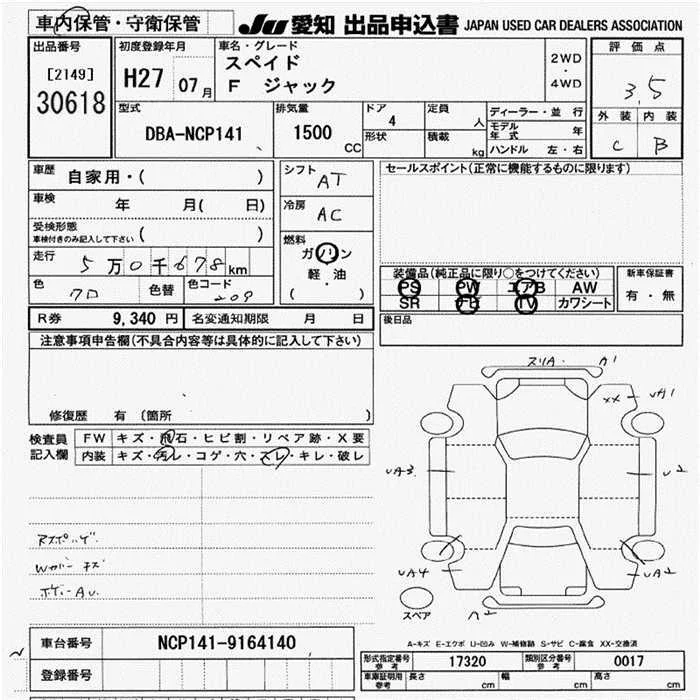 車内保管・守衛保管
JU 愛知 出品申込書 JAPAN USED CAR DEALERS ASSOCIATION
出品番号
[2149]
30618
初度登録年月
H27 07月
車名・グレード
スペイド
F ジャック
2WD
・
4WD
評価点
3.5
外装 内装
C B
型式
DBA-NCP141
排気量
1500
CC
ドア
4
形状
定員
人
積載
kg
ディーラー・並行
モデル年式 年
ハンドル 左・右
車歴 自家用・( )
車検 年 月( 日)
受検形態
車検付きのみ記入して下さい ( )
走行 5万0千678km
色 クロ 色替 色コード 209
シフト
AT
冷房
AC
燃料
ガソリン
・
軽油
( )
セールスポイント(正常に機能するものに限ります)
装備品(純正品に限り○をつけてください)
PS PW エアB AW
SR ナビ TV カワシート
新車保証書
有・無
後日品
R券 9,340円 名変通知期限 月 日
注意事項申告欄(不具合内容等は具体的に記入して下さい)
修復歴 有(箇所 )
検査員
記入欄
FW キズ・飛石・ヒビ割・リペア跡・X要
内装 キズ・汚レ・コゲ・穴・スレ・キレ・破レ
Wカバーキズ
ボデーAU
スリA. A1
XX UA1
UA3
U2
UA4
UA2
スペア
A2
A-キズ E-エクボ U-凹み W-補修跡 S-サビ C-腐食 XX-交換済
車台番号 NCP141-9164140
登録番号
形式指定番号 参考 17320 類別区分番号 参考 0017
車庫証明用 参考 長さ cm 幅 cm 高さ cm